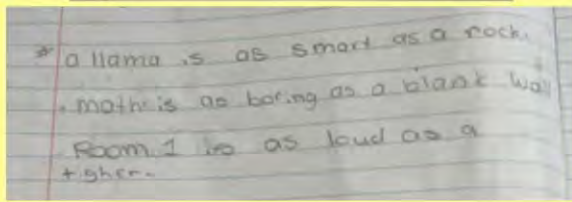 * a llama is as smart as a rock.
. math is as boring as a blank wall
Room 1 is as loud as a
tigher.